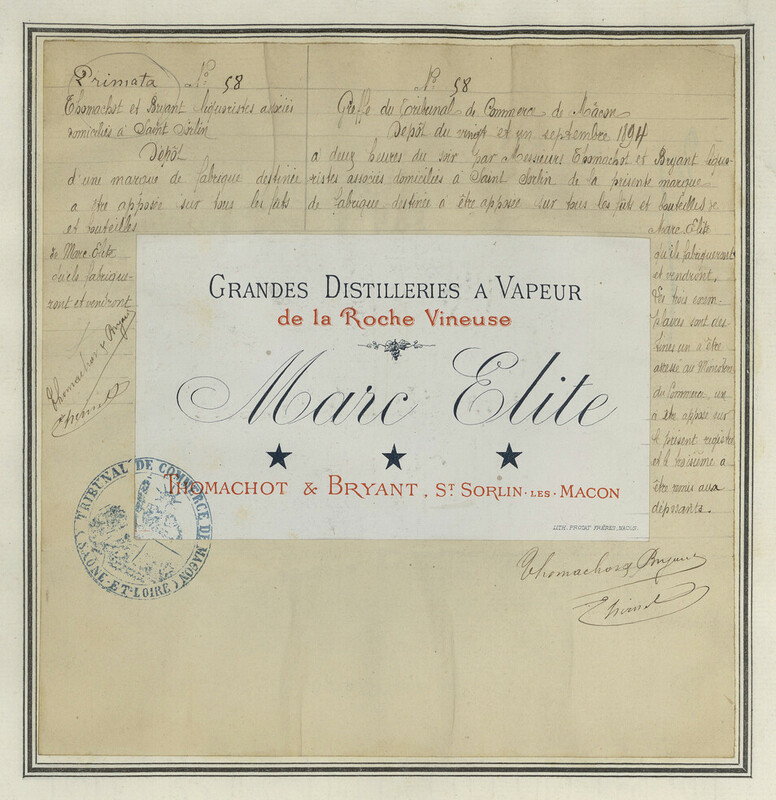 Primata Nº 58
Thomachot et Bryant liquoristes associés
domiciliés à Saint Sorlin
Dépôt
d'une marque de fabrique destinée
a être apposée sur tous les fûts
et bouteilles
de Marc Elite
qu'ils fabrique-
ront et vendront
Thomachot & Bryant
Nº 58
Greffe du Tribunal de Commerce de Mâcon
Dépôt du vingt et un septembre 1894
a deux heures du soir par Messieurs Thomachot et Bryant liquo-
ristes associés domiciliés à Saint Sorlin de la présente marque
de fabrique destinée à être apposée sur tous les fûts et bouteilles de
Marc Elite
qu'ils fabriqueront
et vendront.
Les trois exem-
plaires sont des-
tinés un à être
adressé au Ministère
du Commerce, un
à être apposé sur
le présent registre
et le troisième a
être remis aux
déposants.
GRANDES DISTILLERIES A VAPEUR
de la Roche Vineuse
Marc Elite
THOMACHOT & BRYANT, ST SORLIN-LES-MACON
LITH. PROTAT FRÈRES, MACON.
TRIBUNAL DE COMMERCE DE MACON
(SAONE-ET-LOIRE)
Thomachot & Bryant